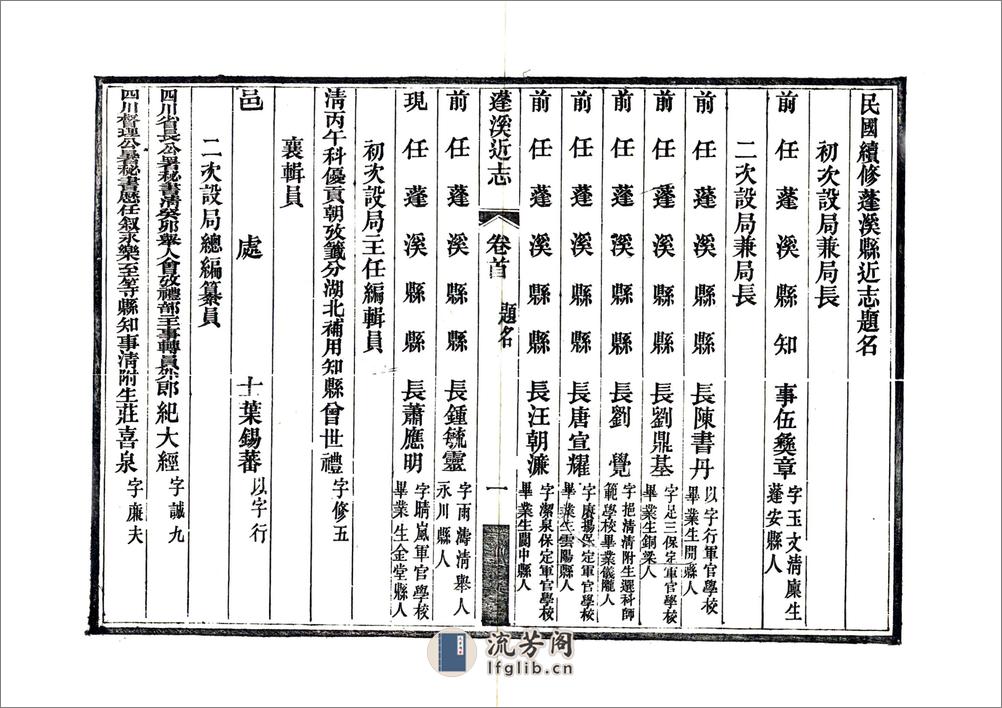 民國續修蓬溪縣近志題名
初次設局兼局長
前任蓬溪縣知事伍彝章字玉文清廩生蓬安縣人
二次設局兼局長
前任蓬溪縣縣長陳書丹以字行軍官學校畢業生開縣人
前任蓬溪縣縣長劉鼎基字足三保定軍官學校畢業生銅梁人
前任蓬溪縣縣長劉覺字挹清清附生選科師範學校畢業儀隴人
前任蓬溪縣縣長唐宣耀字賡揚保定軍官學校畢業生雲陽縣人
前任蓬溪縣縣長汪朝濂字潔泉保定軍官學校畢業生閬中縣人
蓬溪近志 卷首 題名 一
前任蓬溪縣縣長鍾毓靈字雨濤清舉人永川縣人
現任蓬溪縣縣長蕭應明字晴嵐軍官學校畢業生金堂縣人
初次設局主任編輯員
清丙午科優貢朝攷籤分湖北補用知縣曾世禮字修五
襄輯員
邑處士葉錫蕃以字行
二次設局總編纂員
四川省長公署秘書清癸卯舉人會攷禮部主事轉員外郎紀大經字誠九
四川督理公署秘書歷任敘永樂至等縣知事清附生莊喜泉字廉夫
流芳阁
lfglib.cn